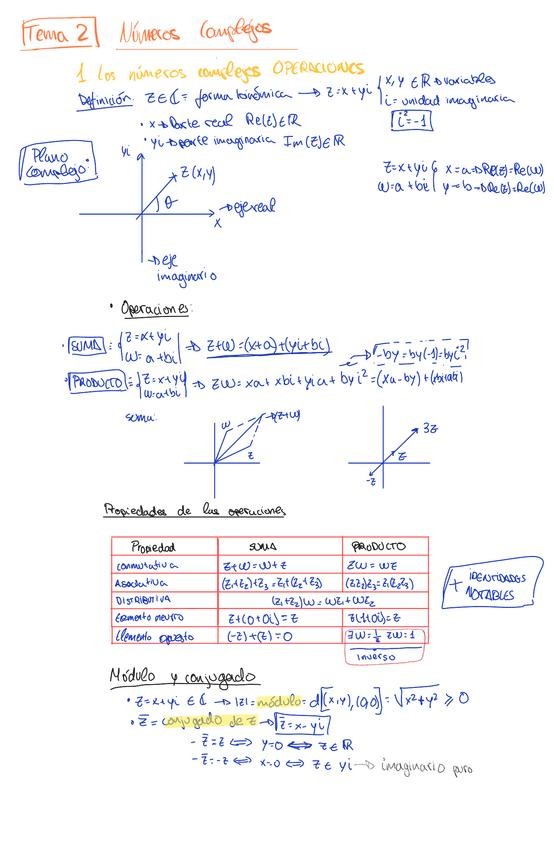 Tema 2 Números Complejos
1 Los números complejos OPERACIONES
Definición Z∈ℂ = forma binómica → z=x+yi { x, y ∈ ℝ → variables
i = unidad imaginaria
i²=-1
· x → Parte real Re(z)∈ℝ
· yi → parte imaginaria Im(z)∈ℝ
Plano complejo
yi
Z(x,y)
θ
x
→ eje real
→ eje
imaginario
z=x+yi { x=a → Re(z)=Re(w)
w=a+bi { y=b → Re(z)=Re(w)
· Operaciones:
· SUMA = { z=x+yi
w=a+bi } ⇒ z+w=(x+a)+(yi+bi)
-by = by(-1)=byi²
· PRODUCTO = { z=x+yi
w=a+bi } ⇒ zw = xa + xbi + yia + byi² = (xa-by)+(xbi+ai)
suma:
w
(z+w)
z
3z
z
-z
Propiedades de las operaciones
Propiedad SUMA PRODUCTO
conmutativa z+w=w+z zw=wz
Asociativa (z₁+z₂)+z₃=z₁+(z₂+z₃) (z₁z₂)z₃=z₁(z₂z₃)
DISTRIBUTIVA (z₁+z₂)w = wz₁+wz₂
Elemento neutro z+(0+0i)=z z(1+0i)=z
Elemento opuesto (-z)+(z)=0 ∃w=1/z zw=1
inverso
+ IDENTIDADES
NOTABLES
Módulo y conjugado
· z=x+yi ∈ ℂ → |z|=módulo=d[(x,y),(0,0)]=√x²+y² ≥ 0
· z̄ = conjugado de z → z̄=x-yi
- z̄=z ⟺ y=0 ⟺ z∈ℝ
- z̄=-z ⟺ x=0 ⟺ z∈ yi → imaginario puro